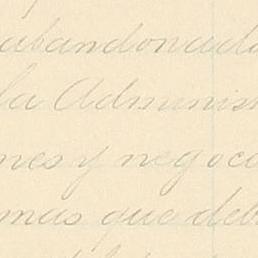 abandonado
la Adminis
nes y negoce
mas que deb